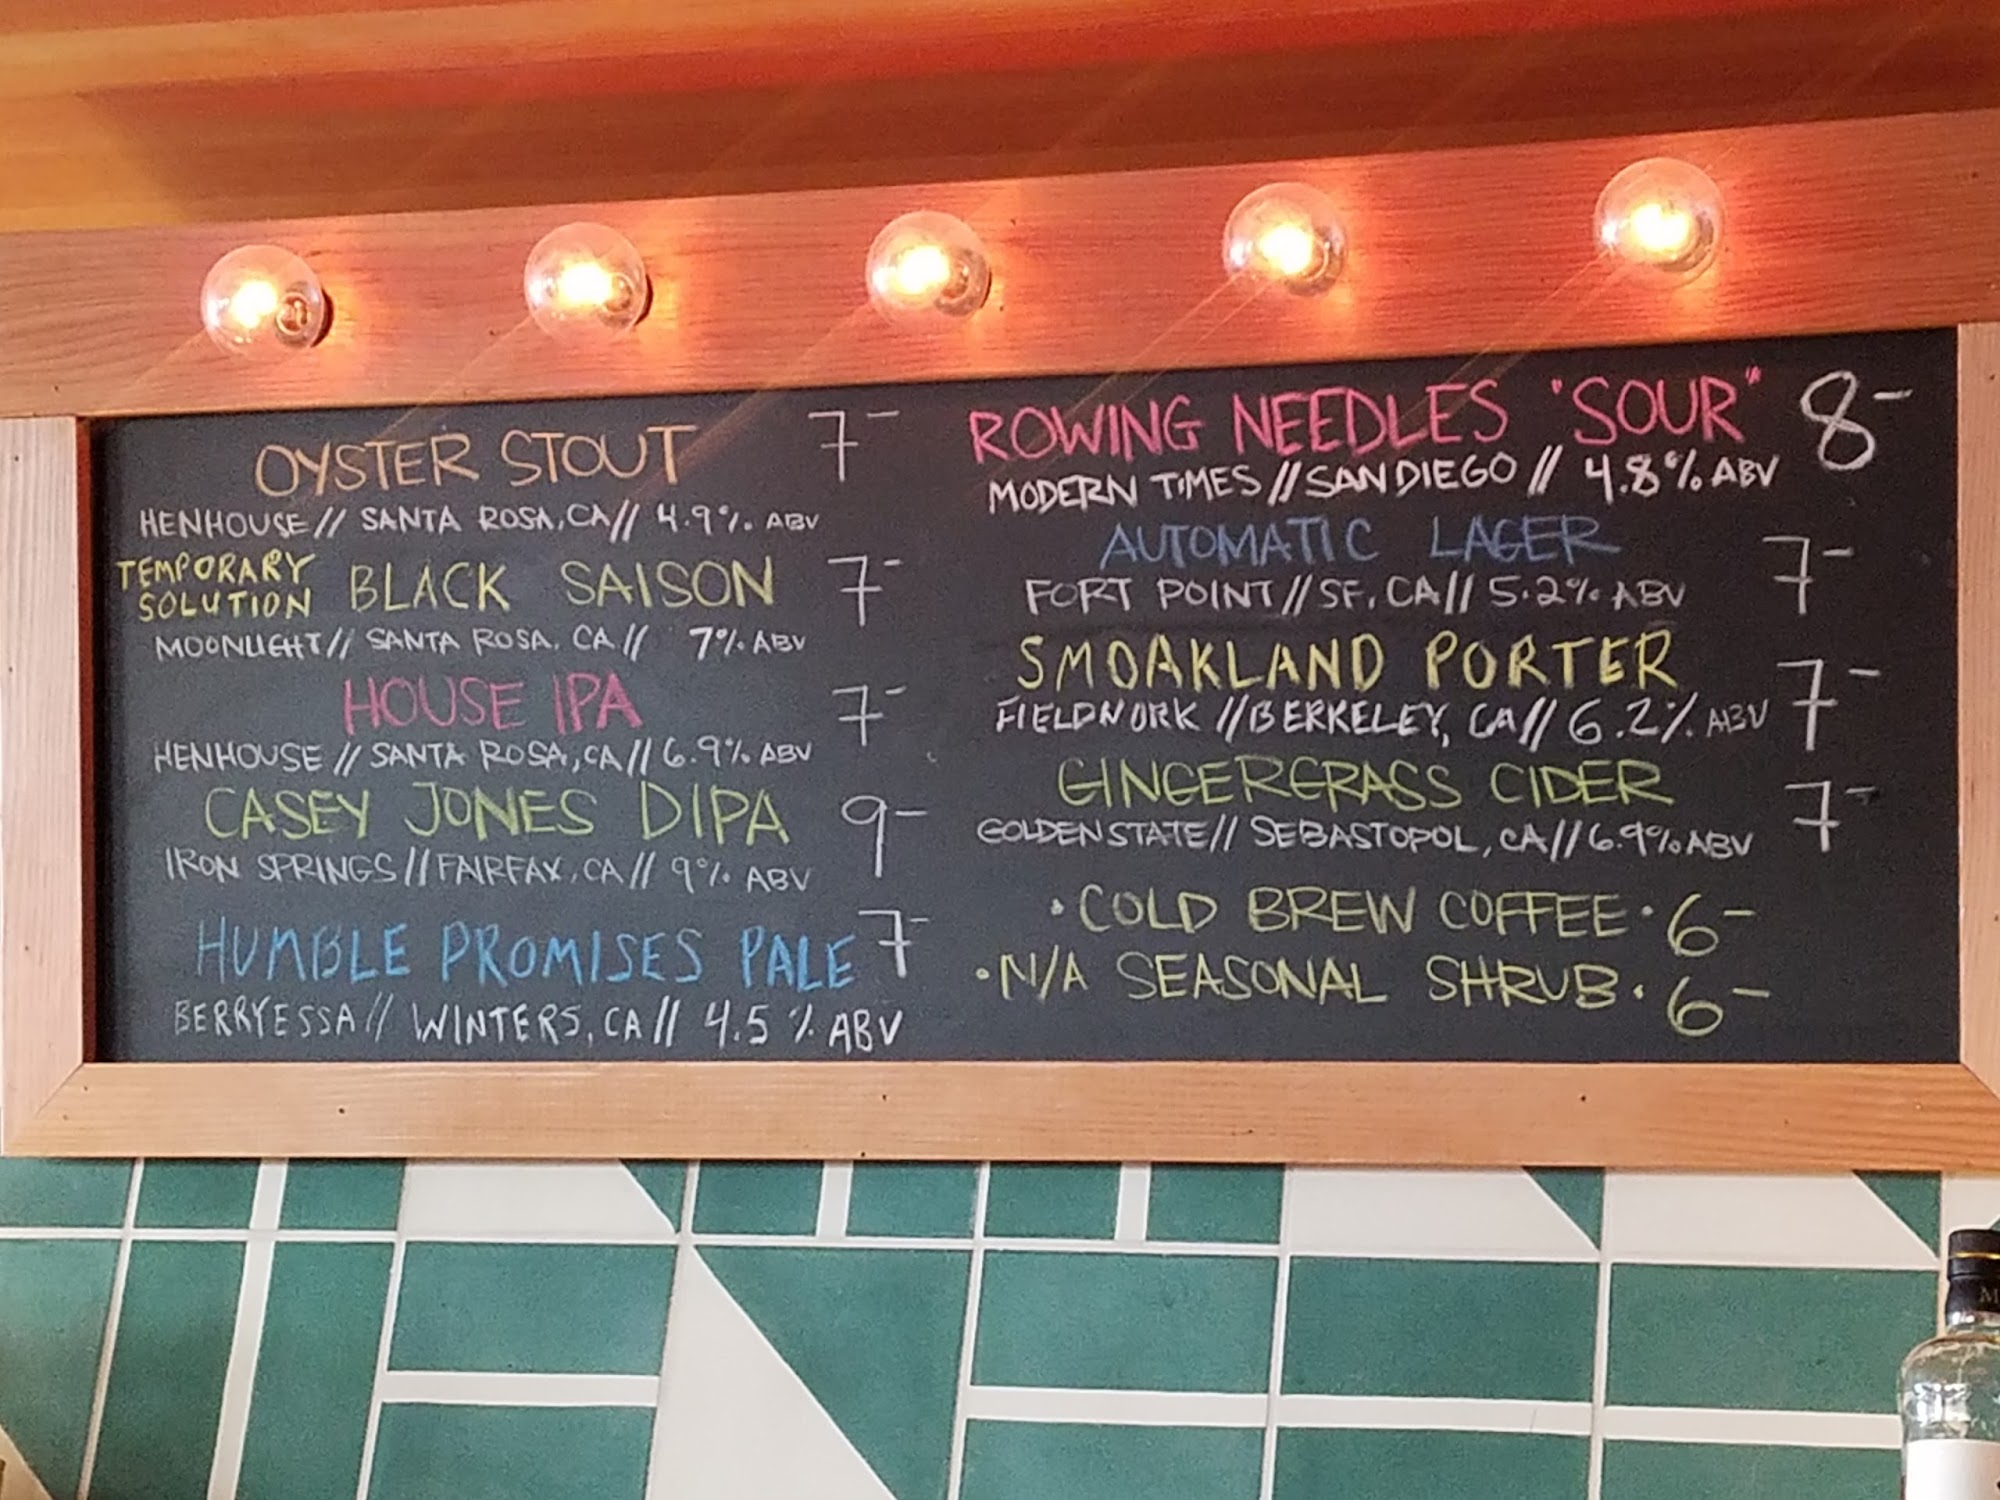 OYSTER STOUT 7-
HENHOUSE // SANTA ROSA, CA // 4.9% ABV
TEMPORARY SOLUTION BLACK SAISON 7-
MOONLIGHT // SANTA ROSA, CA // 7% ABV
HOUSE IPA 7-
HENHOUSE // SANTA ROSA, CA // 6.9% ABV
CASEY JONES DIPA 9-
IRON SPRINGS // FAIRFAX, CA // 9% ABV
HUMBLE PROMISES PALE 7-
BERRYESSA // WINTERS, CA // 4.5% ABV
ROWING NEEDLES "SOUR" 8-
MODERN TIMES // SAN DIEGO // 4.8% ABV
AUTOMATIC LAGER 7-
FORT POINT // SF, CA // 5.2% ABV
SMOAKLAND PORTER 7-
FIELDWORK // BERKELEY, CA // 6.2% ABV
GINGERGRASS CIDER 7-
GOLDEN STATE // SEBASTOPOL, CA // 6.9% ABV
• COLD BREW COFFEE • 6-
• N/A SEASONAL SHRUB • 6-
M